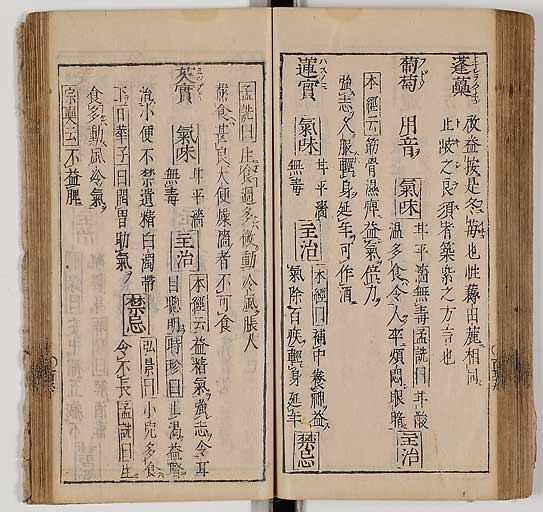 蓬虆
收益按是冬苺也性蓷由蔍相同
止咳之良須者築紫之方言也
葡萄 用音 氣味 甘平濇無毒孟詵曰甘酸
溫多食令人卒煩悶眼暗 主治
本經云筋骨濕痺益氣倍力
強志令人肥輕身延年可作酒
蓮實 氣味 甘平濇 主治 本經曰補中養神益
無毒 氣除百疾輕身延年 禁忌
孟詵曰生食過多微動冷氣脹人
蒸食甚良大便燥濇者不可食
芡實 氣味 甘平濇 主治 本經云益精氣強志令耳
無毒 目聰明時珍曰止渴益腎
治小便不禁遺精白濁帶 禁忌 弘景曰小兒多食
下日華子曰開胃助氣 令不長孟詵曰生
食多動風冷氣
宗奭云不益脾